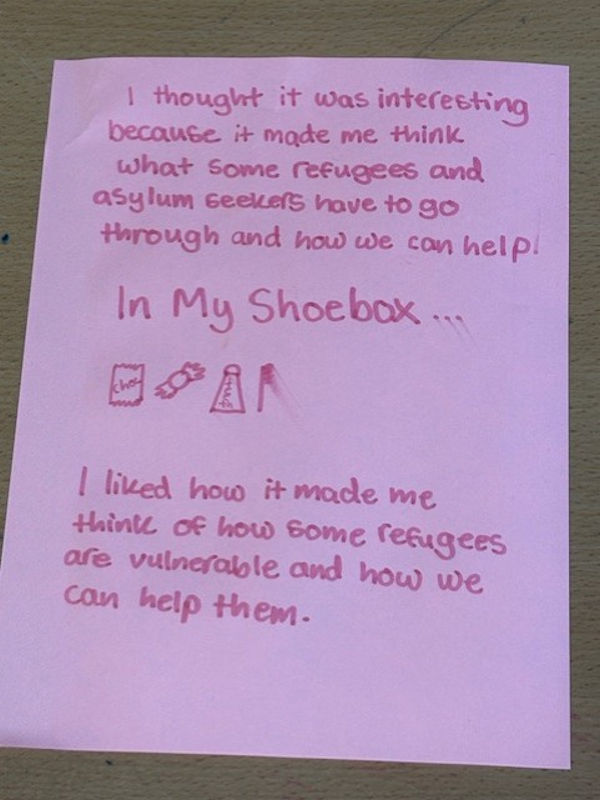 I thought it was interesting
because it made me think
what some refugees and
asylum seekers have to go
through and how we can help!
In My Shoebox...
choc
I liked how it made me
think of how some refugees
are vulnerable and how we
can help them.